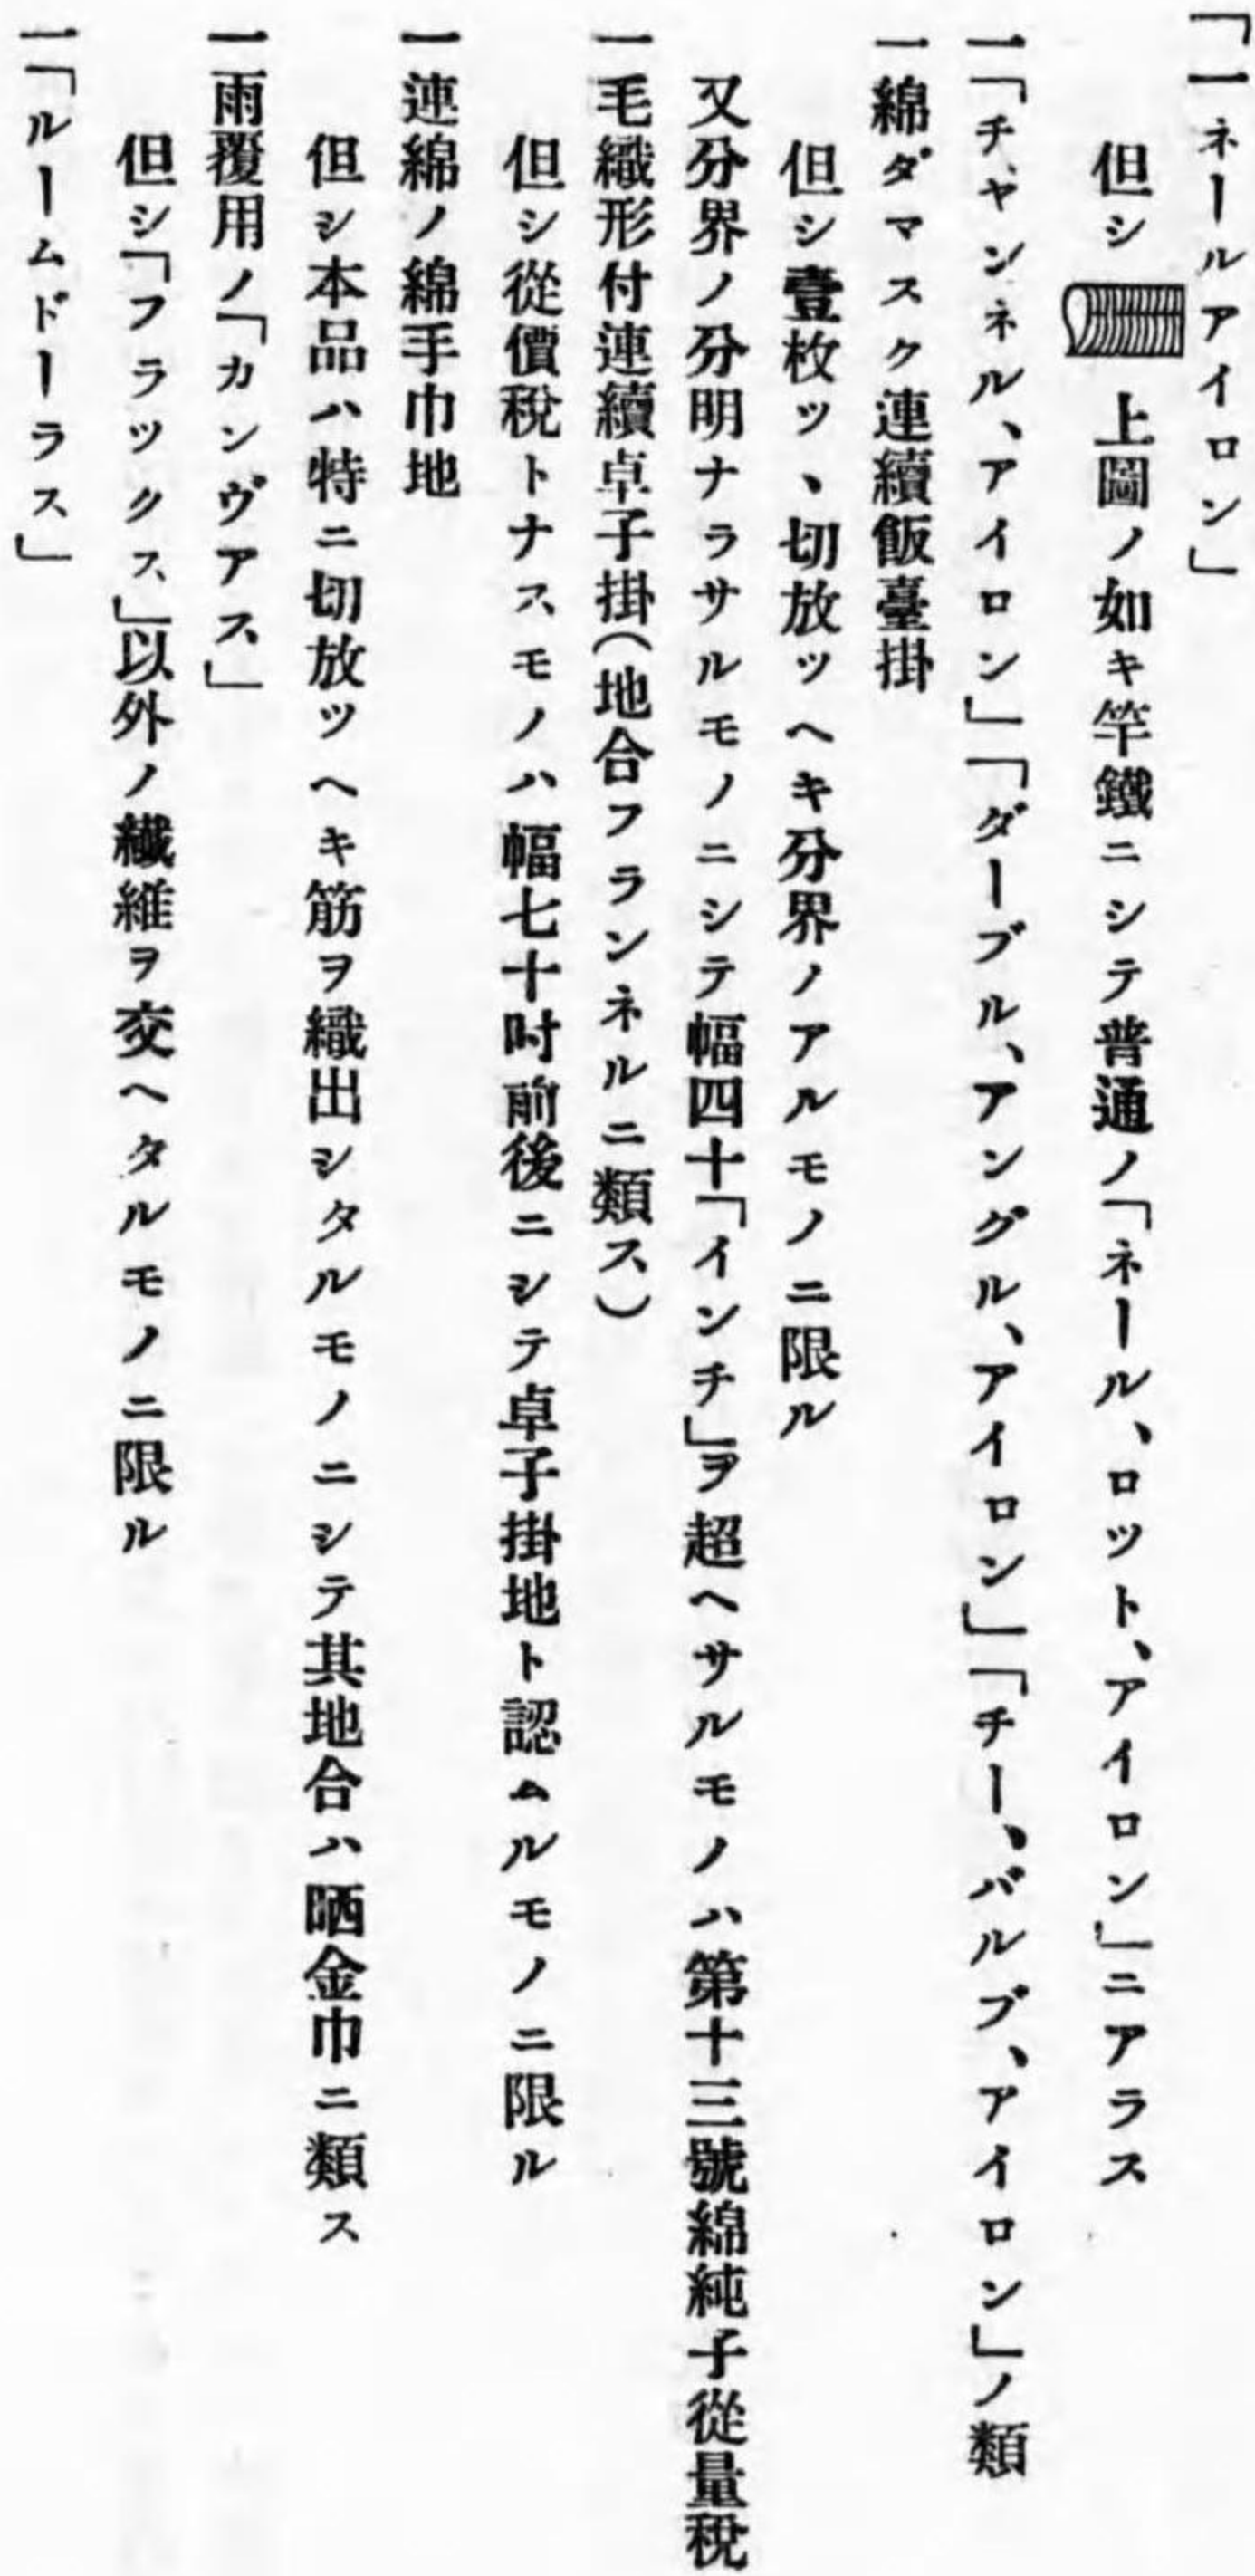 「一ネールアイロン」
但シ上圖ノ如キ竿鐵ニシテ普通ノ「ネール、ロット、アイロン」ニアラス
一「チャンネル、アイロン」「ダーブル、アングル、アイロン」「チー、バルブ、アイロン」ノ類
一綿ダマスク連續飯臺掛
但シ壹枚ツヽ切放ツヘキ分界ノアルモノニ限ル
又分界ノ分明ナラサルモノニシテ幅四十「インチ」ヲ超ヘサルモノハ第十三號綿純子從量稅
一毛織形付連續卓子掛(地合フランネルニ類ス)
但シ從價稅トナスモノハ幅七十吋前後ニシテ卓子掛地ト認ムルモノニ限ル
一連綿ノ綿手巾地
但シ本品ハ特ニ切放ツヘキ筋ヲ織出シタルモノニシテ其地合ハ晒金巾ニ類ス
一雨覆用ノ「カンヴアス」
但シ「フラックス」以外ノ纎維ヲ交ヘタルモノニ限ル
一「ルームドーラス」